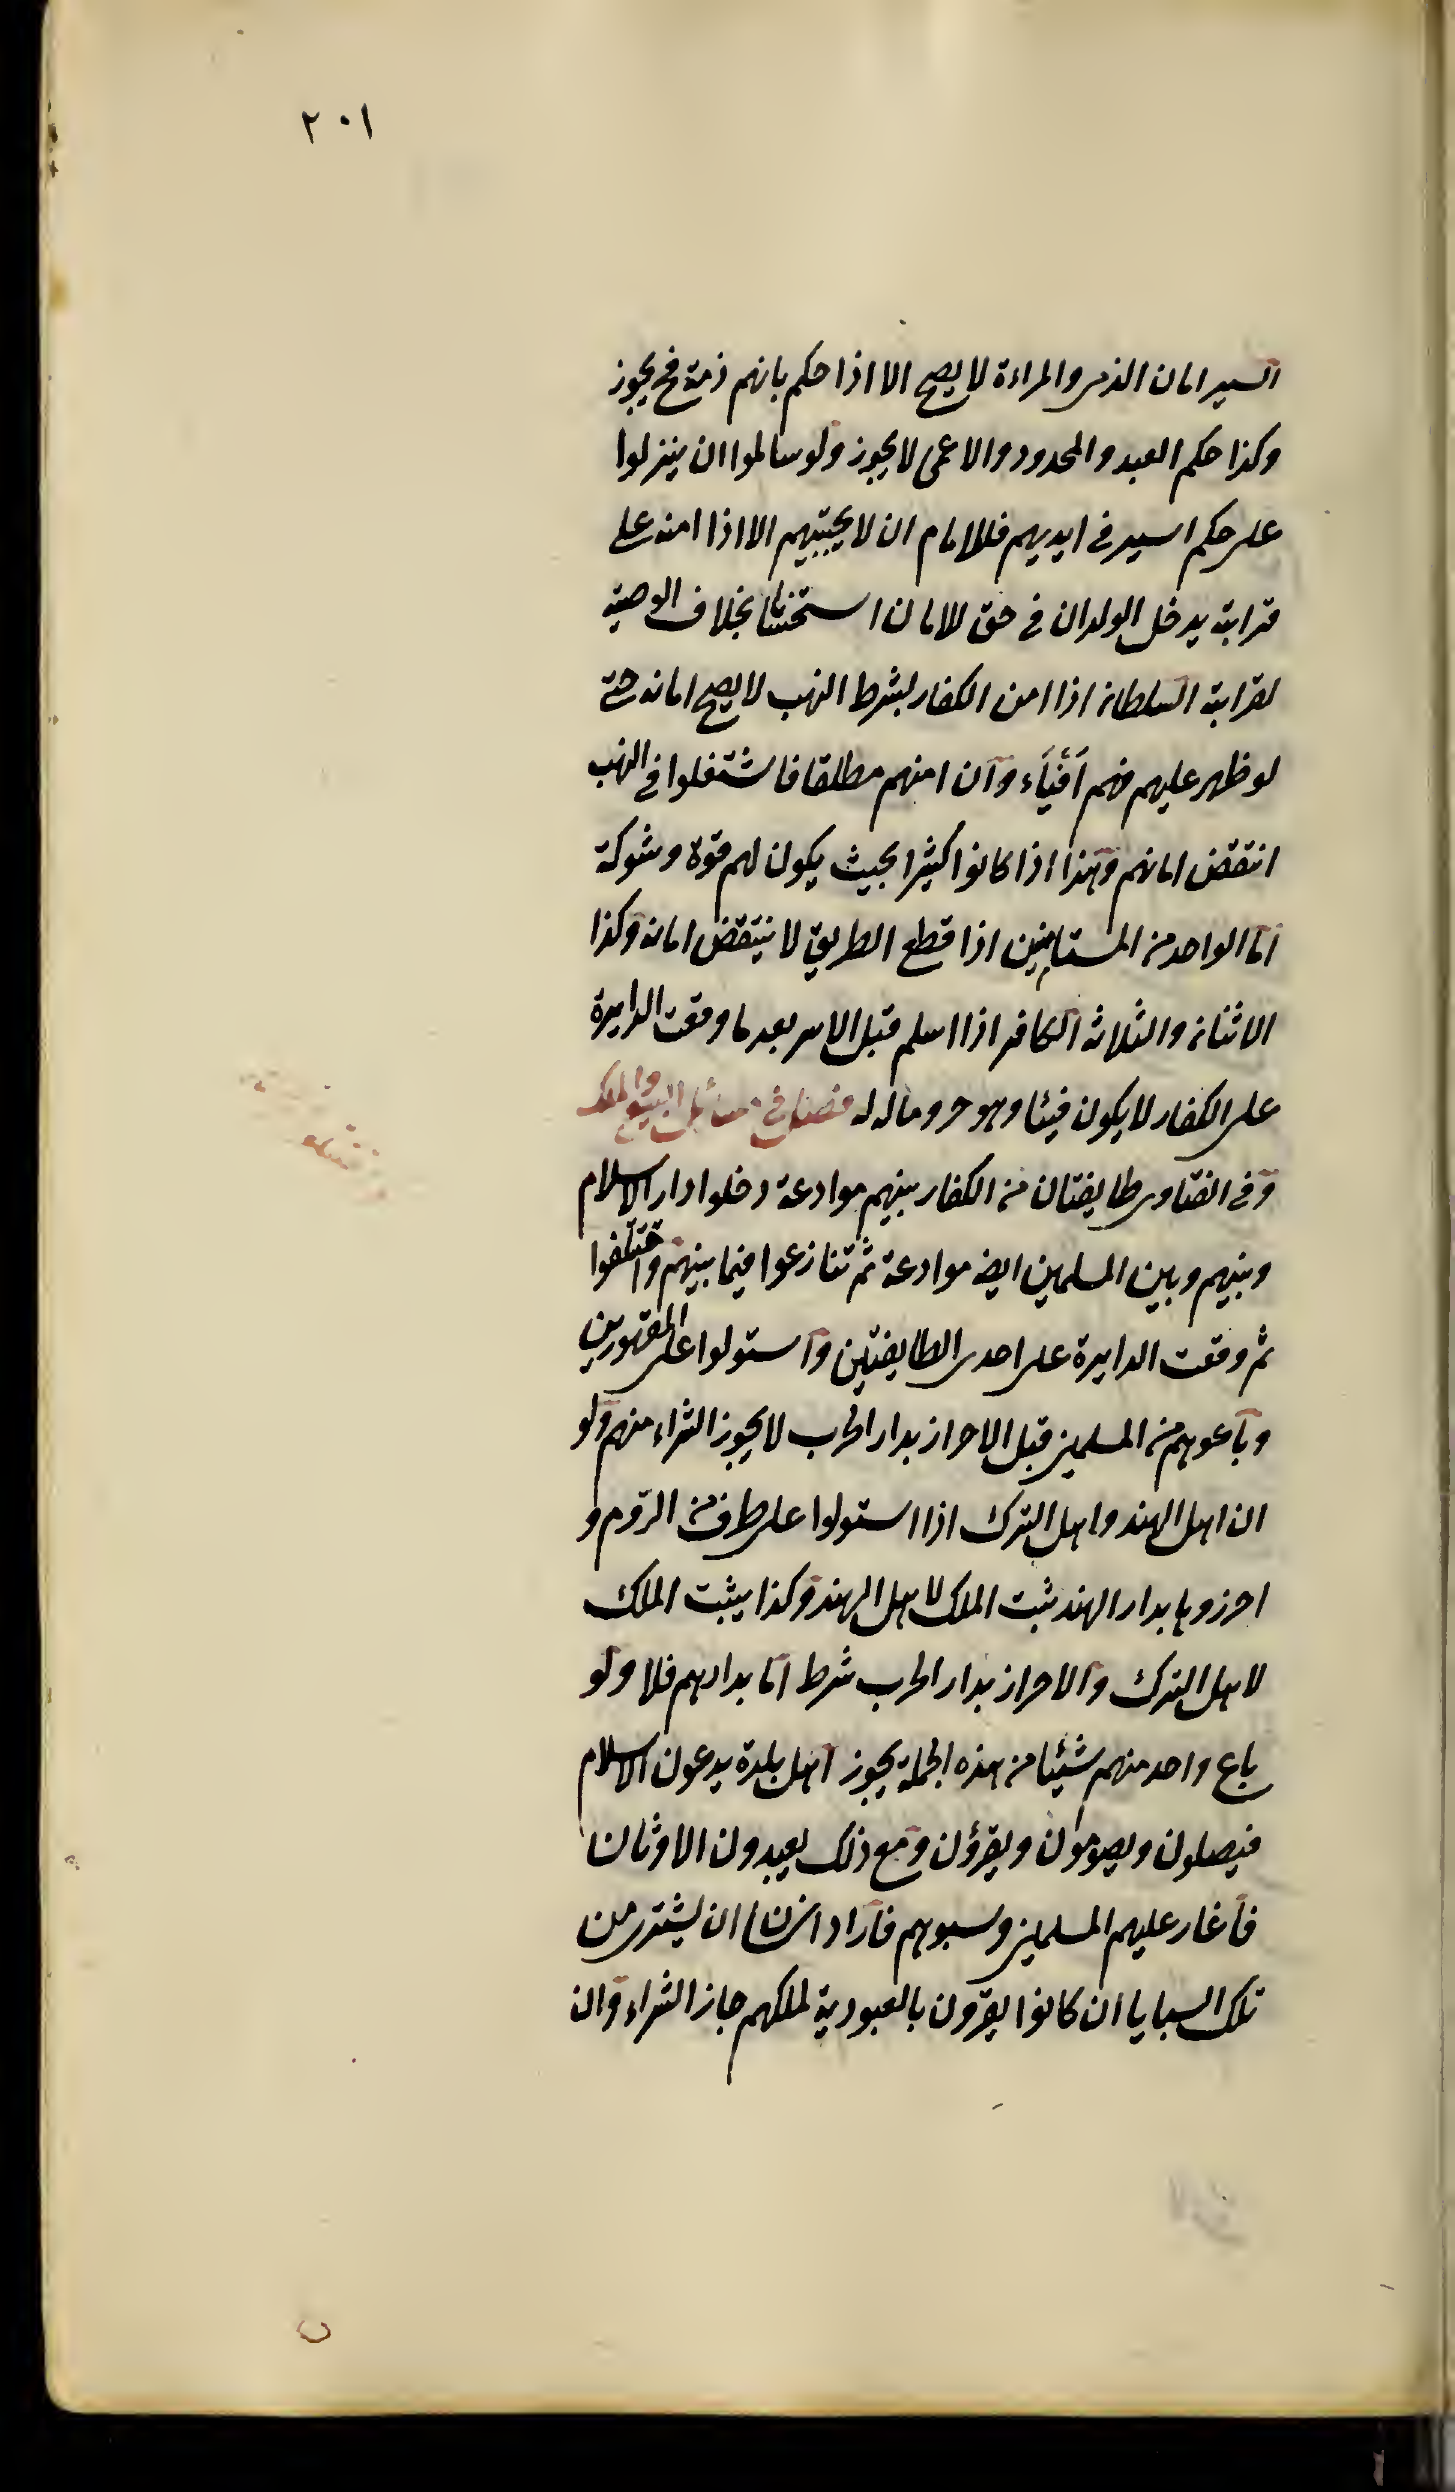 ٢٠١
السير امان الذمى والمراءة لا يصح الا اذا حكم بانهم ذمة فح يجوز
وكذا حكم العبد والمحدود والاعمى لا يجوز ولو سالموا ان ينزلوا
على حكم اسير فى ايديهم فللامام ان لا يجيبهم الا اذا امنه على
قرابته يدخل الولدان فى حق الامان استحسانا بخلاف الوصية
لقرابته السلطان اذا امن الكفار بشرط النهب لا يصح امانه حتى
لو ظهر عليهم فهم افياء وان امنهم مطلقا فاشتغلوا فى النهب
انتقض امانهم وهذا اذا كانوا كثيرا بحيث يكون لهم قوة وشوكة
اما الواحد من المستامنين اذا قطع الطريق لا ينتقض امانه وكذا
الاثنان والثلاثة الكافر اذا اسلم قبل الاسر بعد ما وقعت الدايرة
على الكفار لا يكون فيئا وهو حر وماله له فصل فى مسائل البيع والملك
وفى الفتاوى طايفتان من الكفار بينهم موادعة دخلوا دار الاسلام
وبينهم وبين المسلمين ايضا موادعة ثم تنازعوا فيما بينهم واختلفوا
ثم وقعت الدايرة على احدى الطايفتين واستولوا على المقهورين
وباعوهم من المسلمين قبل الاحراز بدار الحرب لا يجوز الشراء منهم ولو
ان اهل الهند واهل الترك اذا استولوا على طرف من الروم و
احرزوها بدار الهند ثبت الملك لاهل الهند وكذا يثبت الملك
لاهل الترك والاحراز بدار الحرب شرط اما بدارهم فلا ولو
باع واحد منهم شيئا من هذه الجملة يجوز اهل بلدة يدعون الاسلام
فيصلون ويصومون ويقرؤن ومع ذلك يعبدون الاوثان
فاغار عليهم المسلمين وسبوهم فاراد انسانا ان يشترى من
تلك السبايا ان كانوا يقرون بالعبودية لملكهم جاز الشراء وان